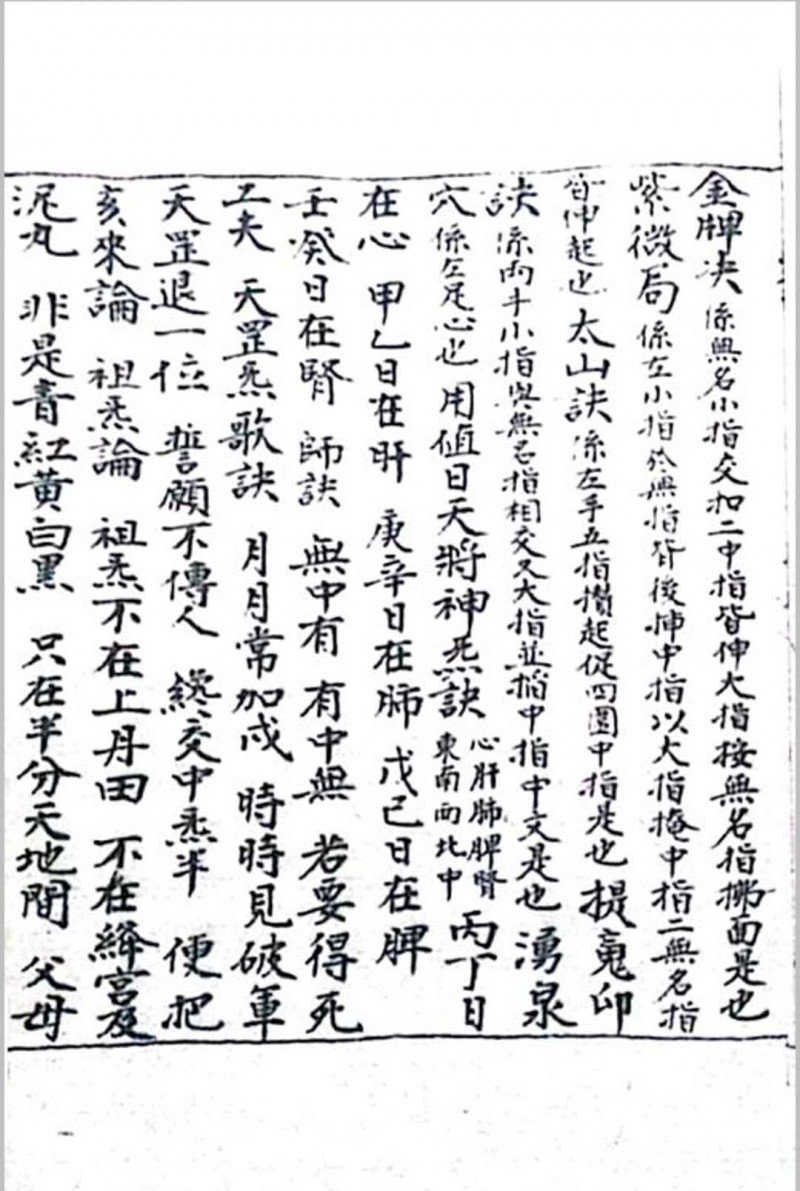 金牌决係無名小指交扣二中指皆伸大指接無名指挪面是也
紫微局係左小指於無指背後揷中指以大指掩中指二無名指
皆伸起也 太山訣係左手五指攢起從四圍中指是也 提鬼卬
訣係兩手小指與無名指相交又大指並掐中指中文是也 湧泉
穴係左足心也 用值日天將神炁訣心肝肺脾腎東南西北中 丙丁日
在心 甲乙日在肝 庚辛日在肺 戊己日在脾
壬癸日在腎 師訣 無中有 有中無 若要得死
工夫 天罡炁歌訣 月月常加戌 時時見破軍
天罡退一位 誓願不傳人 纔交中炁半 便把
亥來論 祖炁論 祖炁不在上丹田 不在絳宮及
泥丸 非是青紅黃白黑 只在半分天地間 父母